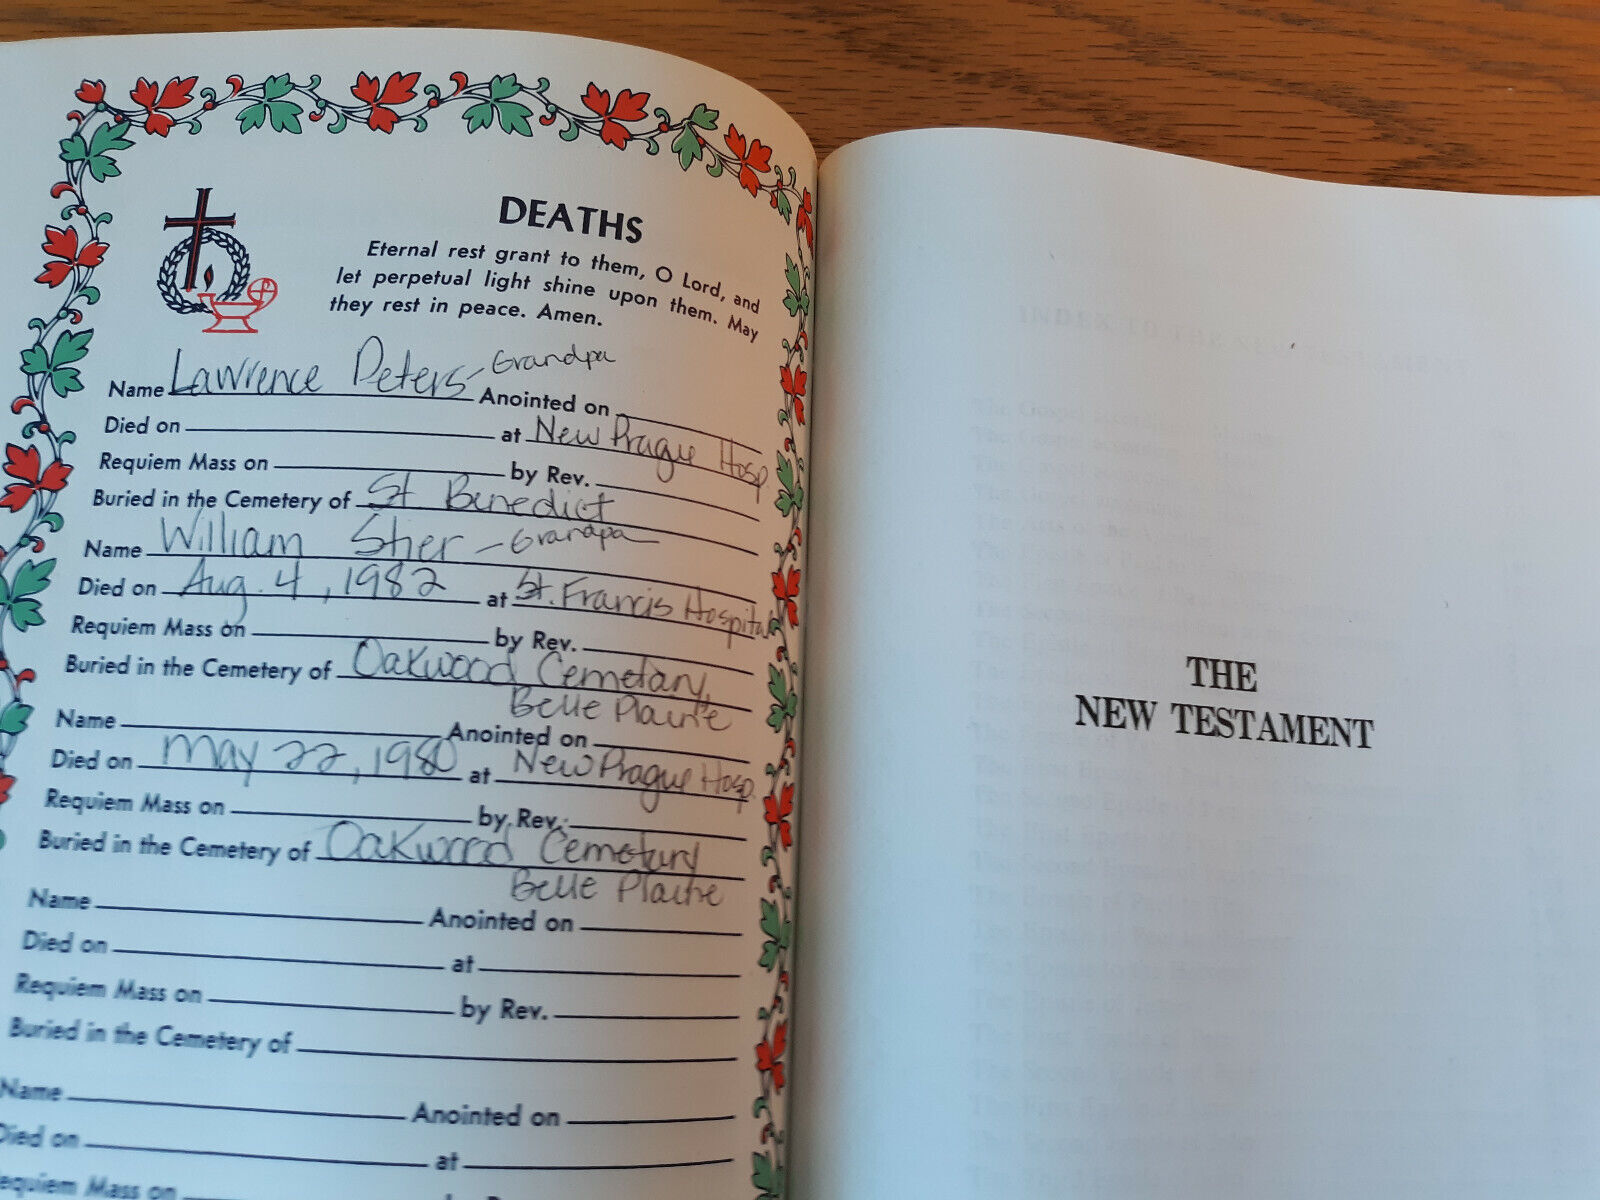 DEATHS
Eternal rest grant to them, O Lord, and
let perpetual light shine upon them. May
they rest in peace. Amen.
Name Lawrence Peters - Grandpa Anointed on
Died on at New Prague Hosp.
Requiem Mass on by Rev.
Buried in the Cemetery of St Benedict
Name William Stier - Grandpa
Died on Aug. 4, 1982 at St. Francis Hospital
Requiem Mass on by Rev.
Buried in the Cemetery of Oakwood Cemetary,
Belle Plaine
Name Anointed on
Died on May 22, 1980 at New Prague Hosp.
Requiem Mass on by Rev.
Buried in the Cemetery of Oakwood Cemetary
Belle Plaine
Name Anointed on
Died on at
Requiem Mass on by Rev.
Buried in the Cemetery of
Name Anointed on
Died on at
Requiem Mass on by
THE
NEW TESTAMENT